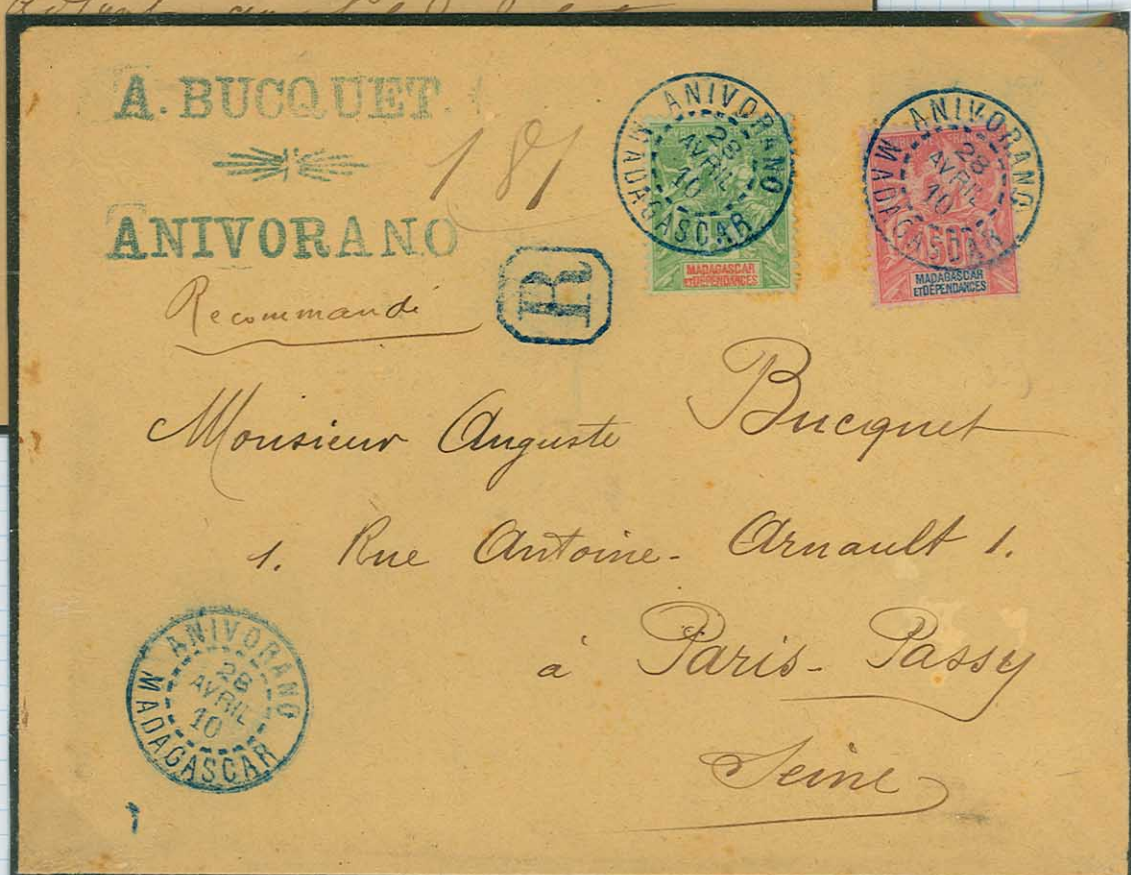 A. BUCQUET.
ANIVORANO
181
Recommandé
R
ANIVORANO
28
AVRIL
10
MADAGASCAR
MADAGASCAR
ET DÉPENDANCES
ANIVORANO
28
AVRIL
10
MADAGASCAR
MADAGASCAR
ET DÉPENDANCES
Monsieur Auguste Bucquet
1. Rue Antoine-Arnault 1.
à Paris-Passy
Seine
ANIVORANO
28
AVRIL
10
MADAGASCAR